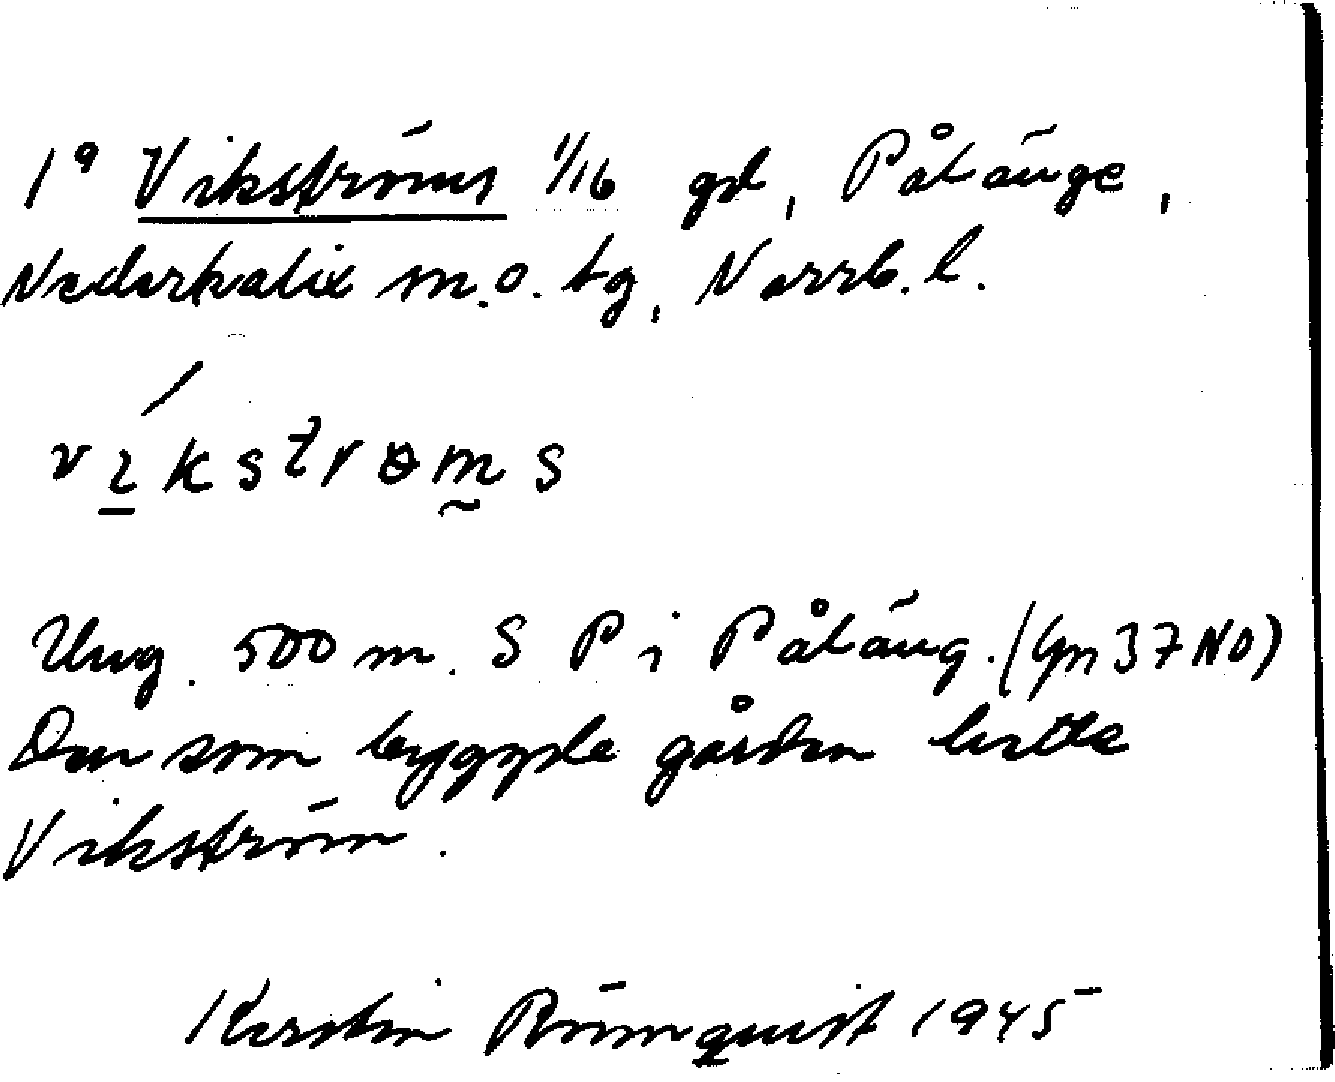 1⁹ Vikströms 1/16 gd, Påtänge,
Nederkalix m.o. tg, Norrb. l.
vɩkstrɵms
Ung. 500 m. S P i Påtäng. (Gn 37 NO)
Den som byggde gården hette
Vikström.
Kerstin Römquist 1945